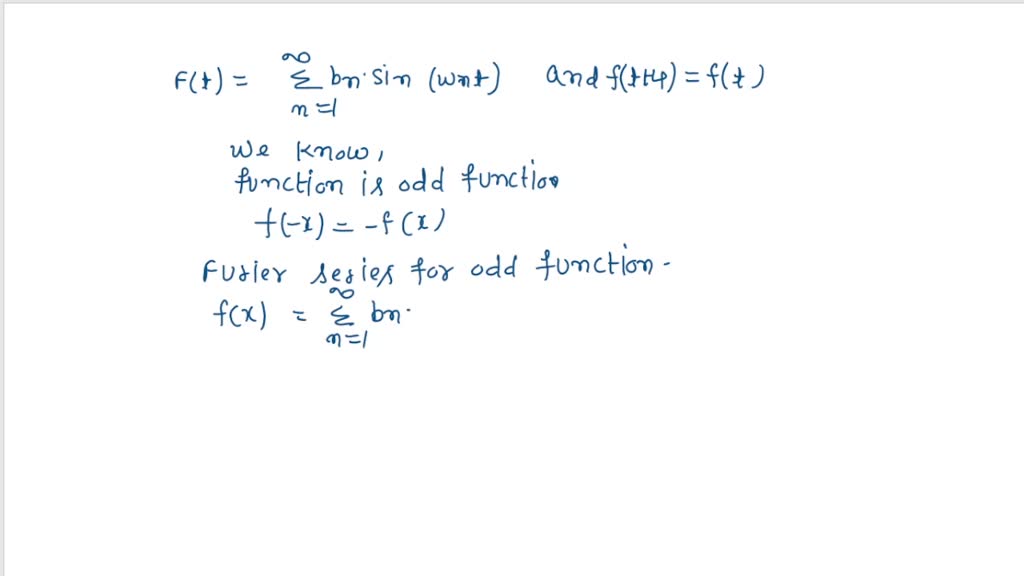 F(t) = ∞Σn=1 bn· sin (wnt) and f(t+4) = f(t)
We know,
function is odd function
f(-x) = -f(x)
Fusier series for odd function.
f(x) = ∞Σn=1 bn·